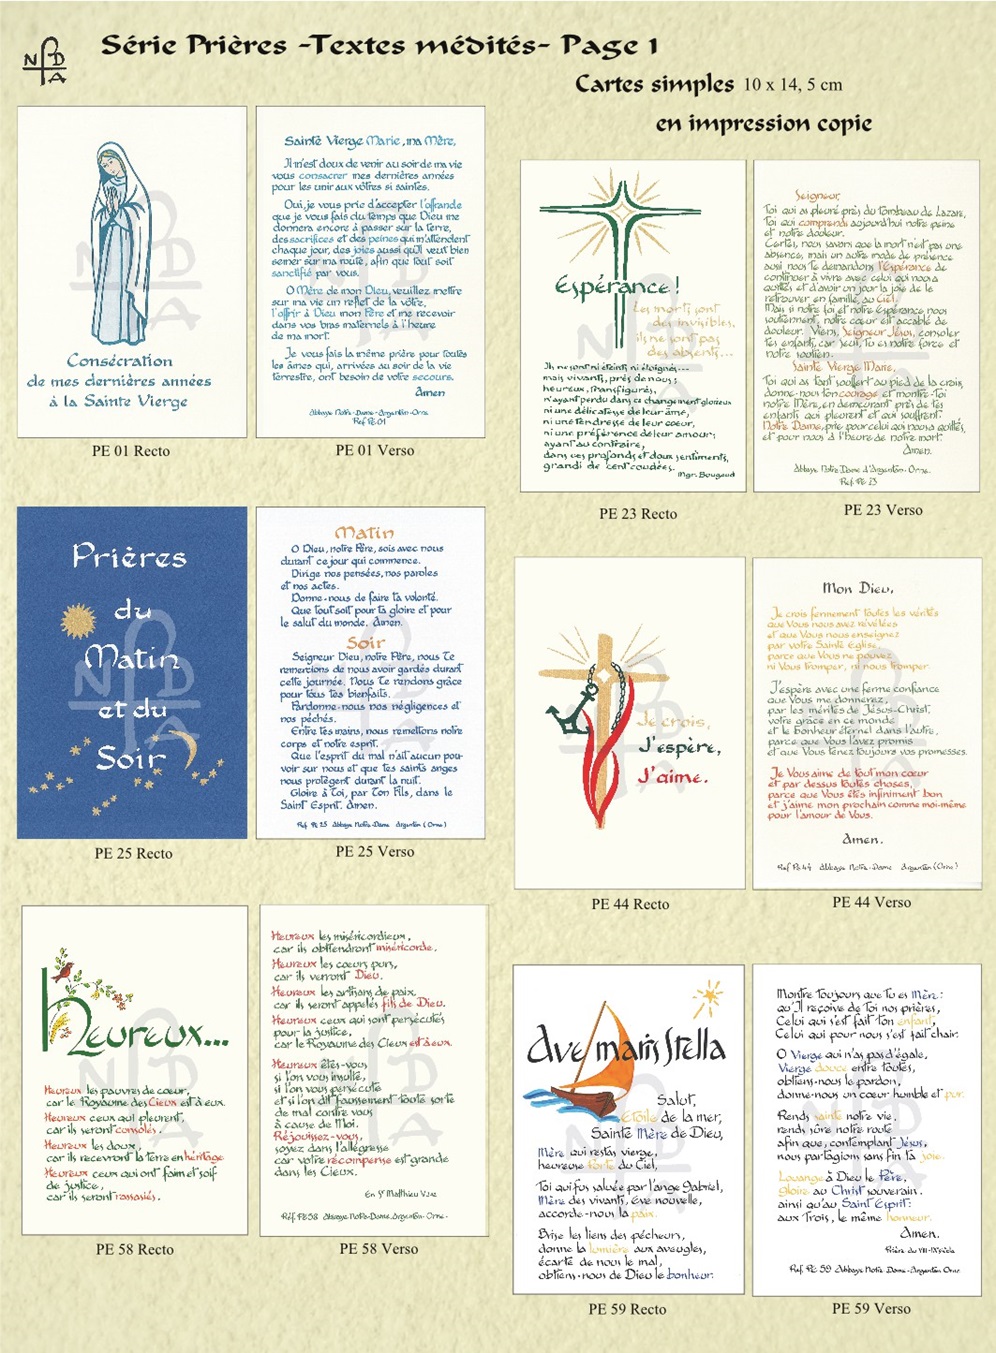 NDA
Série Prières -Textes médités- Page 1
Cartes simples 10 x 14, 5 cm
en impression copie
Consécration
de mes dernières années
à la Sainte Vierge
PE 01 Recto
Sainte Vierge Marie, ma Mère,
Il m'est doux de venir au soir de ma vie
vous consacrer mes dernières années
pour les unir aux vôtres si saintes.
Oui, je vous prie d'accepter l'offrande
que je vous fais du temps que Dieu me
donnera encore à passer sur la terre,
des sacrifices et des peines qui m'attendent
chaque jour, des joies aussi qu'Il veut bien
semer sur ma route, afin que tout soit
sanctifié par vous.
O Mère de mon Dieu, veuillez mettre
sur ma vie un reflet de la vôtre,
l'offrir à Dieu mon Père et me recevoir
dans vos bras maternels à l'heure
de ma mort.
Je vous fais la même prière pour toutes
les âmes qui, arrivées au soir de la vie
terrestre, ont besoin de votre secours.
Amen
Abbaye Notre-Dame-Argentan-Orne
Réf PE 01
PE 01 Verso
Espérance !
Les morts sont
des invisibles,
ils ne sont pas
des absents...
Ils ne sont ni éteints ni éloignés...
mais vivants, près de nous ;
heureux, transfigurés,
n'ayant perdu dans ce changement glorieux
ni une délicatesse de leur âme,
ni une tendresse de leur cœur,
ni une préférence de leur amour ;
ayant au contraire,
dans ces profonds et doux sentiments,
grandi de cent coudées.
Mgr. Bougaud
PE 23 Recto
Seigneur,
Toi qui as pleuré près du tombeau de Lazare,
Toi qui comprends aujourd'hui notre peine
et notre douleur.
Certes, nous savons que la mort n'est pas une
absence, mais un autre mode de présence
aussi nous te demandons l'Espérance de
continuer à vivre avec celui qui nous a
quittés et d'avoir un jour la joie de le
retrouver en famille, au Ciel.
Mais si notre foi et notre Espérance nous
soutiennent, notre cœur est accablé de
douleur. Viens, Seigneur Jésus, consoler
tes enfants, car Jésus, Tu es notre force et
notre soutien.
Sainte Vierge Marie,
Toi qui as tant souffert au pied de la croix,
donne-nous ton courage et montre-toi
notre Mère, en demeurant près de tes
enfants qui pleurent et qui souffrent.
Notre Dame, prie pour celui qui nous a quittés,
et pour nous à l'heure de notre mort.
Amen.
Abbaye Notre Dame d'Argentan-Orne.
Ref. PE 23
PE 23 Verso
Prières
du
Matin
et du
Soir
PE 25 Recto
Matin
O Dieu, notre Père, sois avec nous
durant ce jour qui commence.
Dirige nos pensées, nos paroles
et nos actes.
Donne-nous de faire ta volonté.
Que tout soit pour ta gloire et pour
le salut du monde. Amen.
Soir
Seigneur Dieu, notre Père, nous Te
remercions de nous avoir gardés durant
cette journée. Nous Te rendons grâce
pour tous tes bienfaits.
Pardonne-nous nos négligences et
nos péchés.
Entre tes mains, nous remettons notre
corps et notre esprit.
Que l'esprit du mal n'ait aucun pou-
voir sur nous et que tes saints anges
nous protègent durant la nuit.
Gloire à Toi, par Ton Fils, dans le
Saint Esprit. Amen.
Réf PE 25 Abbaye Notre-Dame Argentan (Orne)
PE 25 Verso
Je crois,
J'espère,
J'aime.
PE 44 Recto
Mon Dieu,
Je crois fermement toutes les vérités
que Vous nous avez révélées
et que Vous nous enseignez
par votre Sainte Eglise,
parce que Vous ne pouvez
ni Vous tromper, ni nous tromper.
J'espère avec une ferme confiance
que Vous me donnerez,
par les mérites de Jésus-Christ,
votre grâce en ce monde
et le bonheur éternel dans l'autre,
parce que Vous l'avez promis
et que Vous tenez toujours vos promesses.
Je Vous aime de tout mon cœur
et par dessus toutes choses,
parce que Vous êtes infiniment bon
et j'aime mon prochain comme moi-même
pour l'amour de Vous.
Amen.
Réf PE 44 Abbaye Notre-Dame Argentan (Orne)
PE 44 Verso
Heureux...
Heureux les pauvres de cœur,
car le Royaume des Cieux est à eux.
Heureux ceux qui pleurent,
car ils seront consolés.
Heureux les doux,
car ils recevront la terre en héritage
Heureux ceux qui ont faim et soif
de justice,
car ils seront rassasiés.
PE 58 Recto
Heureux les miséricordieux,
car ils obtiendront miséricorde.
Heureux les cœurs purs,
car ils verront Dieu.
Heureux les artisans de paix
car ils seront appelés fils de Dieu.
Heureux ceux qui sont persécutés
pour la justice,
car le Royaume des Cieux est à eux.
Heureux êtes-vous
si l'on vous insulte,
si l'on vous persécute
et si l'on dit faussement toute sorte
de mal contre vous
à cause de Moi.
Réjouissez-vous,
soyez dans l'allégresse
car votre récompense est grande
dans les Cieux.
En St Matthieu V,3-12
Réf PE58 Abbaye Notre-Dame-Argentan-Orne-
PE 58 Verso
Ave maris Stella
Salut,
étoile de la mer,
Sainte Mère de Dieu,
Mère qui restas vierge,
heureuse Porte du Ciel,
Toi qui fus saluée par l'ange Gabriel,
Mère des vivants, Eve nouvelle,
accorde-nous la paix.
Brise les liens des pécheurs,
donne la lumière aux aveugles,
écarte de nous le mal,
obtiens-nous de Dieu le bonheur.
PE 59 Recto
Montre toujours que tu es Mère :
qu'Il reçoive de Toi nos prières,
Celui qui s'est fait ton enfant,
Celui qui pour nous s'est fait chair.
O Vierge qui n'as pas d'égale,
Vierge douce entre toutes,
obtiens-nous le pardon,
donne-nous un cœur humble et pur.
Rends sainte notre vie,
rends sûre notre route
afin que, contemplant Jésus,
nous partagions sans fin ta joie.
Louange à Dieu le Père,
gloire au Christ souverain,
ainsi qu'au Saint Esprit :
aux Trois, le même honneur.
Amen.
Prière du VIII-IX siècle
Réf. PE 59 Abbaye Notre Dame-Argentan Orne
PE 59 Verso